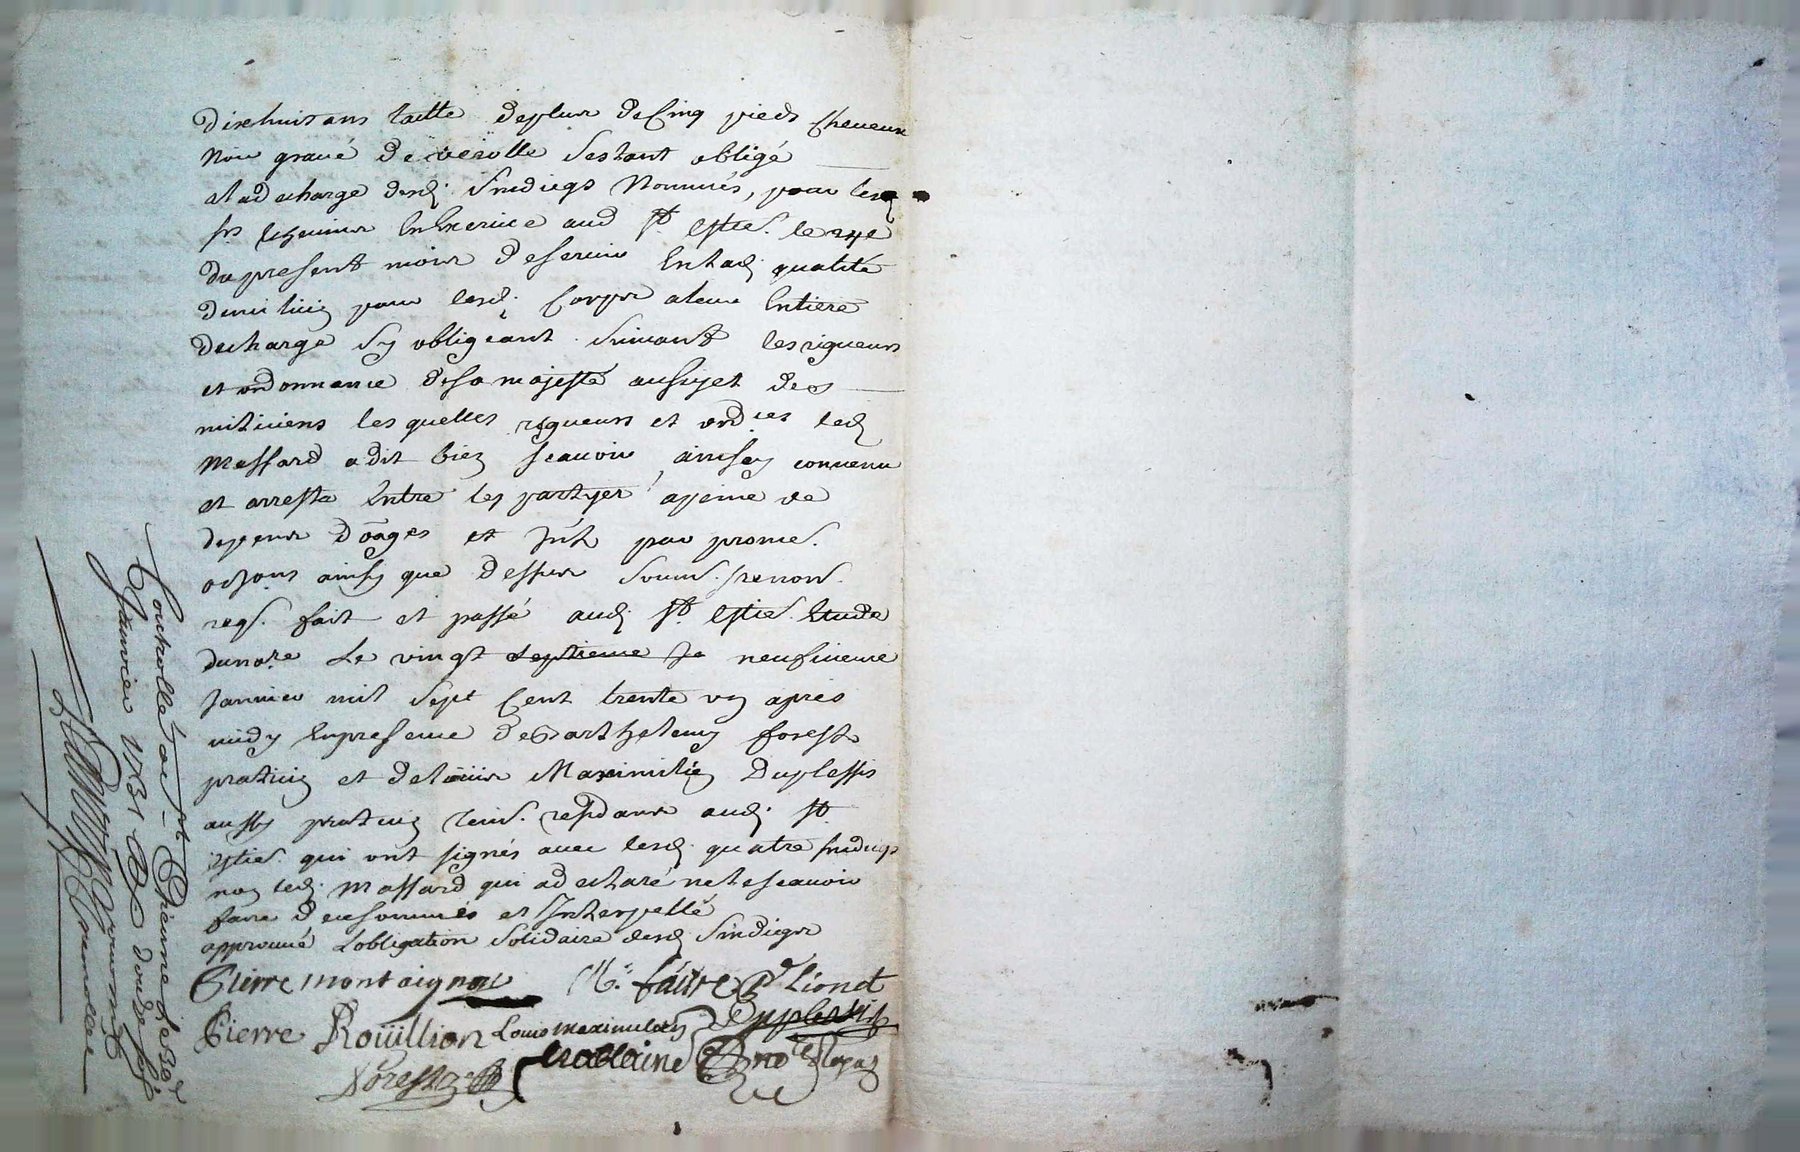 dixhuit ans taille deplus de Cinq pieds cheveux
Noir gravé de verolle sestant obligé
aladecharge desd. sindicqs Nommés, pour lesd
srs
du present mois deservir Entad. qualité
demilicig pour lesd. Corps aleur Entiere
decharge sy obligeant suivant les rigueurs
et ordonnance desa majesté ausujet des
miliciens lesquelles rigueurs et ordces led
Massard adit bien scavoir, ainsy convenu
et arresté Entre les partyes apeine de
depens doāges et Int par prome.
ainsy que dessus soum. renon.
reqs. fait et passé aud. st. Estie. Etude
du nore Le vingt septieme Ja neufvieme
Janvier mil sept Cent trente un apres
midy Enpresence de Barthelemy forest
praticig et deloüis Maximilieg Duplessis
aussy praticig resid aud. st
Estie. qui ont signés avec lesd. quatre sindicqs
nog led. Massard qui adeclaré nelescavoir
faire denesommés et Interpellé
approuvé Lobligation solidaire desd sindicqs
Pierre montaignon M. faure P. Lionet
Pierre Roüillion Louis maximilien Duplessis
Forest
Controllé a st. Etienne le 30e
Janvier 1731 Rx douze s